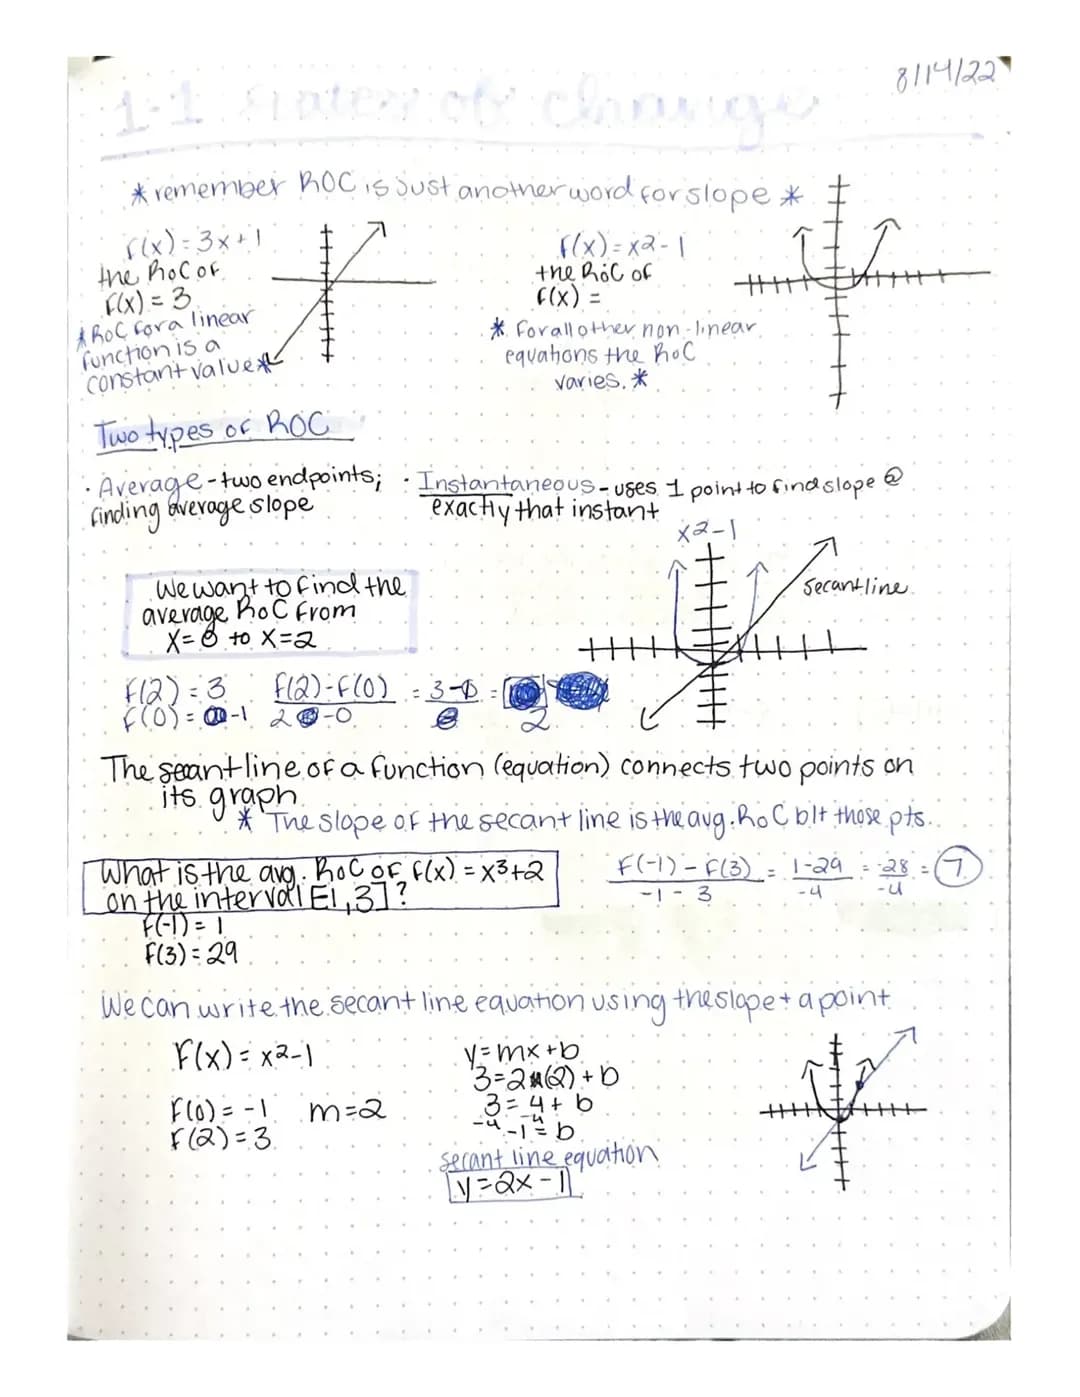 8/14/22
1-1 Rates of change
* remember ROC is just another word for slope *
f(x) = 3x + 1
the RoC of
f(x) = 3
* RoC for a linear
function is a
constant value *
f(x) = x2 - 1
the RoC of
f(x) =
* For all other non-linear
equations the RoC
varies. *
Two types of ROC
· Average - two endpoints;
finding average slope
· Instantaneous - uses 1 point to find slope @
exactly that instant
x2-1
secant line
We want to find the
average RoC from
x=0 to x=2
f(2) = 3
f(0) = -1
f(2) - f(0) = 3-
2 -0
2
The secant line of a function (equation) connects two points on
its graph
* The slope of the secant line is the avg. RoC b/t those pts.
What is the avg. RoC of f(x) = x3+2
on the interval [-1, 3]?
f(-1) = 1
f(3) = 29
f(-1) - f(3) = 1-29 = -28 = 7
-1 - 3 -4 -4
We can write the secant line equation using the slope + a point
F(x) = x2-1
f(0) = -1 m=2
f(2) = 3
y = mx + b
3=2(2) + b
3 = 4 + b
-4 -4
-1 = b
secant line equation
y = 2x - 1